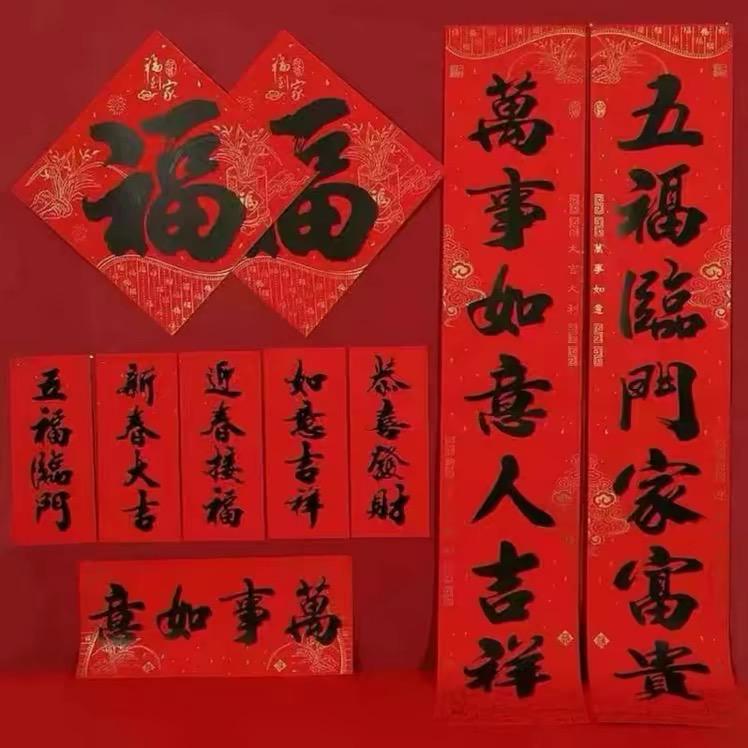 福到家
福
福到家
福
五福臨門家富貴
萬事如意人吉祥
萬事如意
大吉大利
恭喜發財
如意吉祥
近春接福
新春大吉
五福臨門
萬事如意